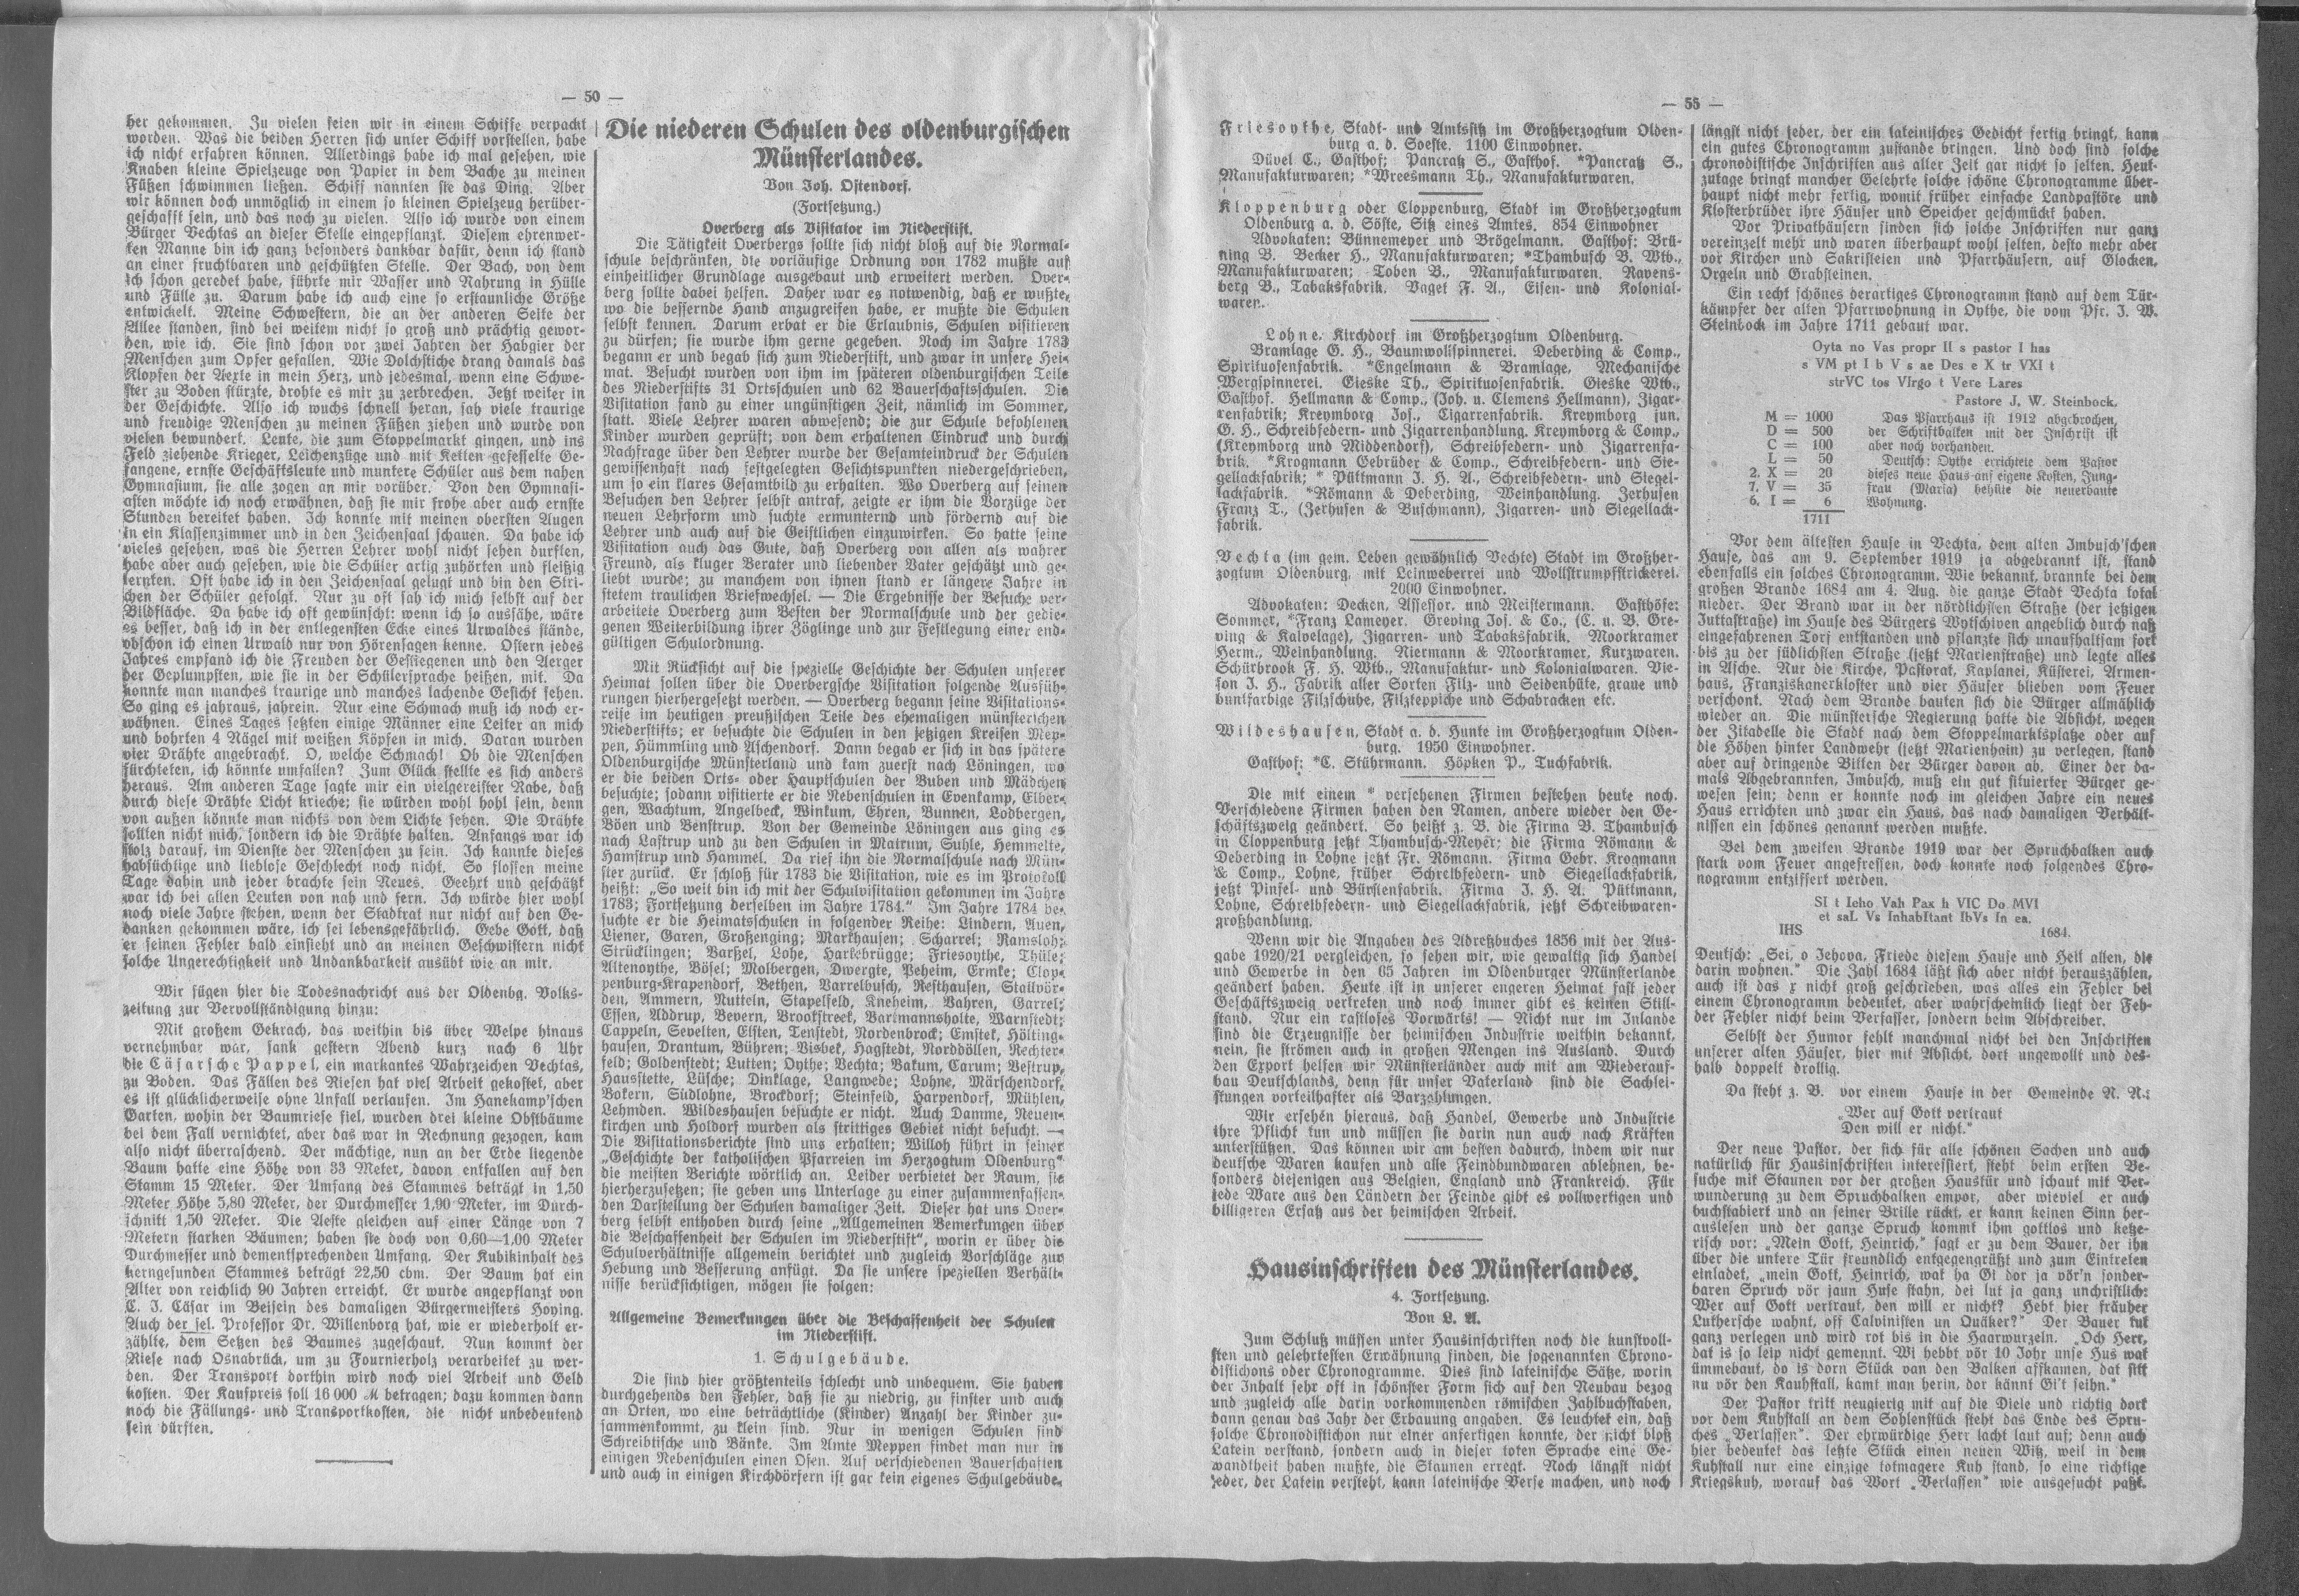 — 50 —
her gekommen. Zu vielen seien wir in einem Schiffe verpackt
worden. Was die beiden Herren sich unter Schiff vorstellen, habe
ich nicht erfahren können. Allerdings habe ich mal gesehen, wie
Knaben kleine Spielzeuge von Papier in dem Bache zu meinen
Füßen schwimmen ließen. Schiff nannten sie das Ding. Aber
wir können doch unmöglich in einem so kleinen Spielzeug herüber-
geschafft sein, und das noch zu vielen. Also ich wurde von einem
Bürger Vechtas an dieser Stelle eingepflanzt. Diesem ehrenwer-
ten Manne bin ich ganz besonders dankbar dafür, denn ich stand
an einer fruchtbaren und geschützten Stelle. Der Bach, von dem
ich schon geredet habe, führte mir Wasser und Nahrung in Hülle
und Fülle zu. Darum habe ich auch eine so erstaunliche Größe
entwickelt. Meine Schwestern, die an der anderen Seite der
Allee standen, sind bei weitem nicht so groß und prächtig gewor-
den, wie ich. Sie sind schon vor zwei Jahren der Habgier der
Menschen zum Opfer gefallen. Wie Dolchstiche drang damals das
Klopfen der Aexte in mein Herz, und jedesmal, wenn eine Schwe-
ster zu Boden stürzte, drohte es mir zu zerbrechen. Jetzt weiter in
der Geschichte. Also ich wuchs schnell heran, sah viele traurige
und freudige Menschen zu meinen Füßen ziehen und wurde von
vielen bewundert. Leute, die zum Stoppelmarkt gingen, und ins
Feld ziehende Krieger, Leichenzüge und mit Ketten gefesselte Ge-
fangene, ernste Geschäftsleute und muntere Schüler aus dem nahen
Gymnasium, sie alle zogen an mir vorüber. Von den Gymnasi-
asten möchte ich noch erwähnen, daß sie mir frohe aber auch ernste
Stunden bereitet haben. Ich konnte mit meinen obersten Augen
in ein Klassenzimmer und in den Zeichensaal schauen. Da habe ich
vieles gesehen, was die Herren Lehrer wohl nicht sehen durften,
habe aber auch gesehen, wie die Schüler artig zuhörten und fleißig
lernten. Oft habe ich in den Zeichensaal gelugt und bin den Stri-
chen der Schüler gefolgt. Nur zu oft sah ich mich selbst auf der
Bildfläche. Da habe ich oft gewünscht: wenn ich so aussähe, wäre
es besser, daß ich in der entlegensten Ecke eines Urwaldes stände,
obschon ich einen Urwald nur von Hörensagen kenne. Ostern jedes
Jahres empfand ich die Freuden der Gestiegenen und den Aerger
der Geplumpsten, wie sie in der Schülersprache heißen, mit. Da
konnte man manches traurige und manches lachende Gesicht sehen.
So ging es jahraus, jahrein. Nur eine Schmach muß ich noch er-
wähnen. Eines Tages setzten einige Männer eine Leiter an mich
und bohrten 4 Nägel mit weißen Köpfen in mich. Daran wurden
vier Drähte angebracht. O, welche Schmach! Ob die Menschen
fürchteten, ich könnte umfallen? Zum Glück stellte es sich anders
heraus. Am anderen Tage sagte mir ein vielgereister Rabe, daß
durch diese Drähte Licht krieche; sie würden wohl hohl sein, denn
von außen könnte man nichts von dem Lichte sehen. Die Drähte
sollten nicht mich, sondern ich die Drähte halten. Anfangs war ich
stolz darauf, im Dienste der Menschen zu sein. Ich kannte dieses
habsüchtige und lieblose Geschlecht noch nicht. So flossen meine
Tage dahin und jeder brachte sein Neues. Geehrt und geschätzt
war ich bei allen Leuten von nah und fern. Ich würde hier wohl
noch viele Jahre stehen, wenn der Stadtrat nur nicht auf den Ge-
danken gekommen wäre, ich sei lebensgefährlich. Gebe Gott, daß
er seinen Fehler bald einsieht und an meinen Geschwistern nicht
solche Ungerechtigkeit und Undankbarkeit ausübt wie an mir.
Wir fügen hier die Todesnachricht aus der Oldenbg. Volks-
zeitung zur Vervollständigung hinzu:
Mit großem Gekrach, das weithin bis über Welpe hinaus
vernehmbar war, sank gestern Abend kurz nach 6 Uhr
die Cäsarsche Pappel, ein markantes Wahrzeichen Vechtas,
zu Boden. Das Fällen des Riesen hat viel Arbeit gekostet, aber
es ist glücklicherweise ohne Unfall verlaufen. Im Hanekamp'schen
Garten, wohin der Baumriese fiel, wurden drei kleine Obstbäume
bei dem Fall vernichtet, aber das war in Rechnung gezogen, kam
also nicht überraschend. Der mächtige, nun an der Erde liegende
Baum hatte eine Höhe von 33 Meter, davon entfallen auf den
Stamm 15 Meter. Der Umfang des Stammes beträgt in 1,50
Meter Höhe 5,80 Meter, der Durchmesser 1,90 Meter, im Durch-
schnitt 1,50 Meter. Die Aeste gleichen auf einer Länge von 7
Metern starken Bäumen; haben sie doch von 0,60—1,00 Meter
Durchmesser und dementsprechenden Umfang. Der Kubikinhalt des
kerngesunden Stammes beträgt 22,50 cbm. Der Baum hat ein
Alter von reichlich 90 Jahren erreicht. Er wurde angepflanzt von
C. J. Cäsar im Beisein des damaligen Bürgermeisters Hoying.
Auch der sel. Professor Dr. Willenborg hat, wie er wiederholt er-
zählte, dem Setzen des Baumes zugeschaut. Nun kommt der
Riese nach Osnabrück, um zu Fournierholz verarbeitet zu wer-
den. Der Transport dorthin wird noch viel Arbeit und Geld
kosten. Der Kaufpreis soll 16 000 M betragen; dazu kommen dann
noch die Fällungs- und Transportkosten, die nicht unbedeutend
sein dürften.
Die niederen Schulen des oldenburgischen
Münsterlandes.
Von Joh. Ostendorf.
(Fortsetzung.)
Overberg als Visitator im Niederstift.
Die Tätigkeit Overbergs sollte sich nicht bloß auf die Normal-
schule beschränken, die vorläufige Ordnung von 1782 mußte auf
einheitlicher Grundlage ausgebaut und erweitert werden. Over-
berg sollte dabei helfen. Daher war es notwendig, daß er wußte,
wo die bessernde Hand anzugreifen habe, er mußte die Schulen
selbst kennen. Darum erbat er die Erlaubnis, Schulen visitieren
zu dürfen; sie wurde ihm gerne gegeben. Noch im Jahre 1783
begann er und begab sich zum Niederstift, und zwar in unsere Hei-
mat. Besucht wurden von ihm im späteren oldenburgischen Teile
des Niederstifts 31 Ortsschulen und 62 Bauerschaftsschulen. Die
Visitation fand zu einer ungünstigen Zeit, nämlich im Sommer,
statt. Viele Lehrer waren abwesend; die zur Schule befohlenen
Kinder wurden geprüft; von dem erhaltenen Eindruck und durch
Nachfrage über den Lehrer wurde der Gesamteindruck der Schulen
gewissenhaft nach festgelegten Gesichtspunkten niedergeschrieben,
um so ein klares Gesamtbild zu erhalten. Wo Overberg auf seinen
Besuchen den Lehrer selbst antraf, zeigte er ihm die Vorzüge der
neuen Lehrform und suchte ermunternd und fördernd auf die
Lehrer und auch auf die Geistlichen einzuwirken. So hatte seine
Visitation auch das Gute, daß Overberg von allen als wahrer
Freund, als kluger Berater und liebender Vater geschätzt und ge-
liebt wurde; zu manchem von ihnen stand er längere Jahre in
stetem traulichen Briefwechsel. — Die Ergebnisse der Besuche ver-
arbeitete Overberg zum Besten der Normalschule und der gedie-
genen Weiterbildung ihrer Zöglinge und zur Festlegung einer end-
gültigen Schulordnung.
Mit Rücksicht auf die spezielle Geschichte der Schulen unserer
Heimat sollen über die Overbergsche Visitation folgende Ausfüh-
rungen hierhergesetzt werden. — Overberg begann seine Visitations-
reise im heutigen preußischen Teile des ehemaligen münsterichen
Niederstifts; er besuchte die Schulen in den jetzigen Kreisen Mep-
pen, Hümmling und Aschendorf. Dann begab er sich in das spätere
Oldenburgische Münsterland und kam zuerst nach Löningen, wo
er die beiden Orts- oder Hauptschulen der Buben und Mädchen
besuchte; sodann visitierte er die Nebenschulen in Evenkamp, Elber-
gen, Wachtum, Angelbeck, Winkum, Ehren, Bunnen, Lodbergen,
Böen und Benstrup. Von der Gemeinde Löningen aus ging es
nach Lastrup und zu den Schulen in Matrum, Suhle, Hemmelte,
Hamstrup und Hammel. Da rief ihn die Normalschule nach Mün-
ster zurück. Er schloß für 1783 die Visitation, wie es im Protokoll
heißt: „So weit bin ich mit der Schulvisitation gekommen im Jahre
1783; Fortsetzung derselben im Jahre 1784.“ Im Jahre 1784 be-
suchte er die Heimatsschulen in folgender Reihe: Lindern, Auen,
Liener, Garen, Großenging; Markhausen; Scharrel; Ramsloh;
Strücklingen; Barßel, Lohe, Harkebrügge; Friesoythe, Thüle;
Altenoythe, Bösel; Molbergen, Dwergte, Peheim, Ermke; Clop-
penburg-Krapendorf, Bethen, Varrelbusch, Resthausen, Stallvör-
den, Ammern, Nutteln, Stapelfeld, Kneheim, Vahren, Garrel;
Essen, Addrup, Bevern, Brookstreek, Bartmannsholte, Warnstedt;
Cappeln, Sevelten, Elsten, Tenstedt, Nordenbrock; Emstek, Hölting-
hausen, Drantum, Bühren; Visbek, Hagstedt, Norddöllen, Rechter-
feld; Goldenstedt; Lutten; Oythe; Vechta; Bakum, Carum; Vestrup,
Hausstette, Lüsche; Dinklage, Langwede; Lohne, Märschendorf,
Bokern, Südlohne, Brockdorf; Steinfeld, Harpendorf, Mühlen,
Lehmden. Wildeshausen besuchte er nicht. Auch Damme, Neuen-
kirchen und Holdorf wurden als strittiges Gebiet nicht besucht. —
Die Visitationsberichte sind uns erhalten; Willoh führt in seiner
„Geschichte der katholischen Pfarreien im Herzogtum Oldenburg“
die meisten Berichte wörtlich an. Leider verbietet der Raum, sie
hierherzusetzen; sie geben uns Unterlage zu einer zusammenfassen-
den Darstellung der Schulen damaliger Zeit. Dieser hat uns Over-
berg selbst enthoben durch seine „Allgemeinen Bemerkungen über
die Beschaffenheit der Schulen im Niederstift“, worin er über die
Schulverhältnisse allgemein berichtet und zugleich Vorschläge zur
Hebung und Besserung anfügt. Da sie unsere speziellen Verhält-
nisse berücksichtigen, mögen sie folgen:
Allgemeine Bemerkungen über die Beschaffenheit der Schulen
im Niederstift.
1. Schulgebäude.
Die sind hier größtenteils schlecht und unbequem. Sie haben
durchgehends den Fehler, daß sie zu niedrig, zu finster und auch
an Orten, wo eine beträchtliche (Kinder) Anzahl der Kinder zu-
sammenkommt, zu klein sind. Nur in wenigen Schulen sind
Schreibtische und Bänke. Im Amte Meppen findet man nur in
einigen Nebenschulen einen Ofen. Auf verschiedenen Bauerschaften
und auch in einigen Kirchdörfern ist gar kein eigenes Schulgebäude,
— 55 —
Friesoythe, Stadt- und Amtssitz im Großherzogtum Olden-
burg a. d. Soeste. 1100 Einwohner.
Düvel C., Gasthof; Pancratz S., Gasthof. *Pancratz S.,
Manufakturwaren; *Wreesmann Th., Manufakturwaren.
Kloppenburg oder Cloppenburg, Stadt im Großherzogtum
Oldenburg a. d. Söste, Sitz eines Amtes. 854 Einwohner
Advokaten: Bünnemeyer und Brögelmann. Gasthof: Brü-
ning B. Becker H., Manufakturwaren; *Thambusch B. Wtb.,
Manufakturwaren; Toben B., Manufakturwaren. Ravens-
berg B., Tabaksfabrik. Vaget F. A., Eisen- und Kolonial-
waren.
Lohne. Kirchdorf im Großherzogtum Oldenburg.
Bramlage G. H., Baumwollspinnerei. Deberding & Comp.,
Spirituosenfabrik. *Engelmann & Bramlage, Mechanische
Wergspinnerei. Gieske Th., Spirituosenfabrik. Gieske Wtb.,
Gasthof. Hellmann & Comp., (Joh. u. Clemens Hellmann), Zigar-
renfabrik; Kreymborg Jos., Cigarrenfabrik. Kreymborg jun.
G. H., Schreibfedern- und Zigarrenhandlung. Kreymborg & Comp.,
(Kreymborg und Middendorf), Schreibfedern- und Zigarrenfa-
brik. *Krogmann Gebrüder & Comp., Schreibfedern- und Sie-
gellackfabrik; * Püttmann J. H. A., Schreibfedern- und Siegel-
lackfabrik. *Römann & Deberding, Weinhandlung. Zerhusen
Franz T., (Zerhusen & Buschmann), Zigarren- und Siegellack-
fabrik.
Vechta (im gem. Leben gewöhnlich Vechte) Stadt im Großher-
zogtum Oldenburg, mit Leinweberrei und Wollstrumpfstrickerei.
2000 Einwohner.
Advokaten: Decken, Assessor, und Meistermann. Gasthöfe:
Sommer, *Franz Lameyer. Greving Jos. & Co., (C. u. B. Gre-
ving & Kalvelage), Zigarren- und Tabaksfabrik. Moorkramer
Herm., Weinhandlung. Niermann & Moorkramer, Kurzwaren.
Schürbrook F. H. Wtb., Manufaktur- und Kolonialwaren. Vie-
son J. H., Fabrik aller Sorten Filz- und Seidenhüte, graue und
buntfarbige Filzschuhe, Filzteppiche und Schabracken etc.
Wildeshausen, Stadt a. d. Hunte im Großherzogtum Olden-
burg. 1950 Einwohner.
Gasthof: *C. Stührmann. Höpken P., Tuchfabrik.
Die mit einem * versehenen Firmen bestehen heute noch.
Verschiedene Firmen haben den Namen, andere wieder den Ge-
schäftszweig geändert. So heißt z. B. die Firma B. Thambusch
in Cloppenburg jetzt Thambusch-Meyer; die Firma Römann &
Deberding in Lohne jetzt Fr. Römann. Firma Gebr. Krogmann
& Comp., Lohne, früher Schreibfedern- und Siegellackfabrik,
jetzt Pinsel- und Bürstenfabrik. Firma J. H. A. Püttmann,
Lohne, Schreibfedern- und Siegellackfabrik, jetzt Schreibwaren-
großhandlung.
Wenn wir die Angaben des Adreßbuches 1856 mit der Aus-
gabe 1920/21 vergleichen, so sehen wir, wie gewaltig sich Handel
und Gewerbe in den 65 Jahren im Oldenburger Münsterlande
geändert haben. Heute ist in unserer engeren Heimat fast jeder
Geschäftszweig vertreten und noch immer gibt es keinen Still-
stand. Nur ein rastloses Vorwärts! — Nicht nur im Inlande
sind die Erzeugnisse der heimischen Industrie weithin bekannt,
nein, sie strömen auch in großen Mengen ins Ausland. Durch
den Export helfen wir Münsterländer auch mit am Wiederauf-
bau Deutschlands, denn für unser Vaterland sind die Sachlei-
stungen vorteilhafter als Barzahlungen.
Wir ersehen hieraus, daß Handel, Gewerbe und Industrie
ihre Pflicht tun und müssen sie darin nun auch nach Kräften
unterstützen. Das können wir am besten dadurch, indem wir nur
deutsche Waren kaufen und alle Feindbundwaren ablehnen, be-
sonders diejenigen aus Belgien, England und Frankreich. Für
jede Ware aus den Ländern der Feinde gibt es vollwertigen und
billigeren Ersatz aus der heimischen Arbeit.
Hausinschriften des Münsterlandes.
4. Fortsetzung.
Von L. A.
Zum Schluß müssen unter Hausinschriften noch die kunstvoll-
sten und gelehrtesten Erwähnung finden, die sogenannten Chrono-
distichons oder Chronogramme. Dies sind lateinische Sätze, worin
der Inhalt sehr oft in schönster Form sich auf den Neubau bezog
und zugleich alle darin vorkommenden römischen Zahlbuchstaben,
dann genau das Jahr der Erbauung angaben. Es leuchtet ein, daß
solche Chronodistichon nur einer anfertigen konnte, der nicht bloß
Latein verstand, sondern auch in dieser toten Sprache eine Ge-
wandtheit haben mußte, die Staunen erregt. Noch längst nicht
jeder, der Latein versteht, kann lateinische Verse machen, und noch
längst nicht jeder, der ein lateinisches Gedicht fertig bringt, kann
ein gutes Chronogramm zustande bringen. Und doch sind solche
chronodistische Inschriften aus aller Zeit gar nicht so selten. Heut-
zutage bringt mancher Gelehrte solche schöne Chronogramme über-
haupt nicht mehr fertig, womit früher einfache Landpastöre und
Klosterbrüder ihre Häuser und Speicher geschmückt haben.
Vor Privathäusern finden sich solche Inschriften nur ganz
vereinzelt mehr und waren überhaupt wohl selten, desto mehr aber
vor Kirchen und Sakristeien und Pfarrhäusern, auf Glocken,
Orgeln und Grabsteinen.
Ein recht schönes derartiges Chronogramm stand auf dem Tür-
kämpfer der alten Pfarrwohnung in Oythe, die vom Pfr. J. W.
Steinbock im Jahre 1711 gebaut war.
Oyta no Vas propr II s pastor I has
s VM pt I b V s ae Des e X tr VXI t
strVC tos VIrgo t Vere Lares
Pastore J. W. Steinbock.
M = 1000
D = 500
C = 100
L = 50
2. X = 20
7. V = 35
6. I = 6
1711
Das Pfarrhaus ist 1912 abgebrochen,
der Schriftbalken mit der Inschrift ist
aber noch vorhanden.
Deutsch: Oythe errichtete dem Pastor
dieses neue Haus auf eigene Kosten, Jung-
frau (Maria) behüte die neuerbaute
Wohnung.
Vor dem ältesten Hause in Vechta, dem alten Imbusch'schen
Hause, das am 9. September 1919 ja abgebrannt ist, stand
ebenfalls ein solches Chronogramm. Wie bekannt, brannte bei dem
großen Brande 1684 am 4. Aug. die ganze Stadt Vechta total
nieder. Der Brand war in der nördlichsten Straße (der jetzigen
Juttastraße) im Hause des Bürgers Wotschiven angeblich durch naß
eingefahrenen Torf entstanden und pflanzte sich unaufhaltsam fort
bis zu der südlichsten Straße (jetzt Marienstraße) und legte alles
in Asche. Nur die Kirche, Pastorat, Kaplanei, Küsterei, Armen-
haus, Franziskanerkloster und vier Häuser blieben vom Feuer
verschont. Nach dem Brande bauten sich die Bürger allmählich
wieder an. Die münstersche Regierung hatte die Absicht, wegen
der Zitadelle die Stadt nach dem Stoppelmarktsplatze oder auf
die Höhen hinter Landwehr (jetzt Marienhain) zu verlegen, stand
aber auf dringende Bitten der Bürger davon ab. Einer der da-
mals Abgebrannten, Imbusch, muß ein gut situierter Bürger ge-
wesen sein; denn er konnte noch im gleichen Jahre ein neues
Haus errichten und zwar ein Haus, das nach damaligen Verhält-
nissen ein schönes genannt werden mußte.
Bei dem zweiten Brande 1919 war der Spruchbalken auch
stark vom Feuer angefressen, doch konnte noch folgendes Chro-
nogramm entziffert werden.
SI t Ieho Vah Pax h VIC Do MVI
et saL Vs InhabItant IbVs In ea.
IHS 1684.
Deutsch: „Sei, o Jehova, Friede diesem Hause und Heil allen, die
darin wohnen.“ Die Zahl 1684 läßt sich aber nicht herauszählen,
auch ist das x nicht groß geschrieben, was alles ein Fehler bei
einem Chronogramm bedeutet, aber wahrscheinlich liegt der Feh-
der Fehler nicht beim Verfasser, sondern beim Abschreiber.
Selbst der Humor fehlt manchmal nicht bei den Inschriften
unserer alten Häuser, hier mit Absicht, dort ungewollt und des-
halb doppelt drollig.
Da steht z. B. vor einem Hause in der Gemeinde N. N.:
„Wer auf Gott vertraut
Den will er nicht.“
Der neue Pastor, der sich für alle schönen Sachen und auch
natürlich für Hausinschriften interessiert, steht beim ersten Be-
suche mit Staunen vor der großen Haustür und schaut mit Ver-
wunderung zu dem Spruchbalken empor, aber wieviel er auch
buchstabiert und an seiner Brille rückt, er kann keinen Sinn her-
auslesen und der ganze Spruch kommt ihm gottlos und ketze-
risch vor: „Mein Gott, Heinrich,“ sagt er zu dem Bauer, der ihn
über die untere Tür freundlich entgegengrüßt und zum Eintreten
einladet, „mein Gott, Heinrich, wat ha Gi dor ja vör'n sonder-
baren Spruch vör jaun Huse stahn, dei lut ja ganz unchristlich:
Wer auf Gott vertraut, den will er nicht? Hebt hier fräuher
Luthersche wahnt, off Calvinisten un Quäker?“ Der Bauer tut
ganz verlegen und wird rot bis in die Haarwurzeln. „Och Herr,
dat is so leip nicht gemennt. Wi hebbt vör 10 Johr unse Hus wat
ümmebaut, do is dorn Stück van den Balken affkamen, dat sitt
nu vör den Kauhstall, kamt man herin, dor kännt Gi't seihn.“
Der Pastor tritt neugierig mit auf die Diele und richtig dort
vor dem Kuhstall an dem Sohlenstück steht das Ende des Spru-
ches „Verlassen“. Der ehrwürdige Herr lacht laut auf; denn auch
hier bedeutet das letzte Stück einen neuen Witz, weil in dem
Kuhstall nur eine einzige totmagere Kuh stand, so eine richtige
Kriegskuh, worauf das Wort „Verlassen“ wie ausgesucht paßt.